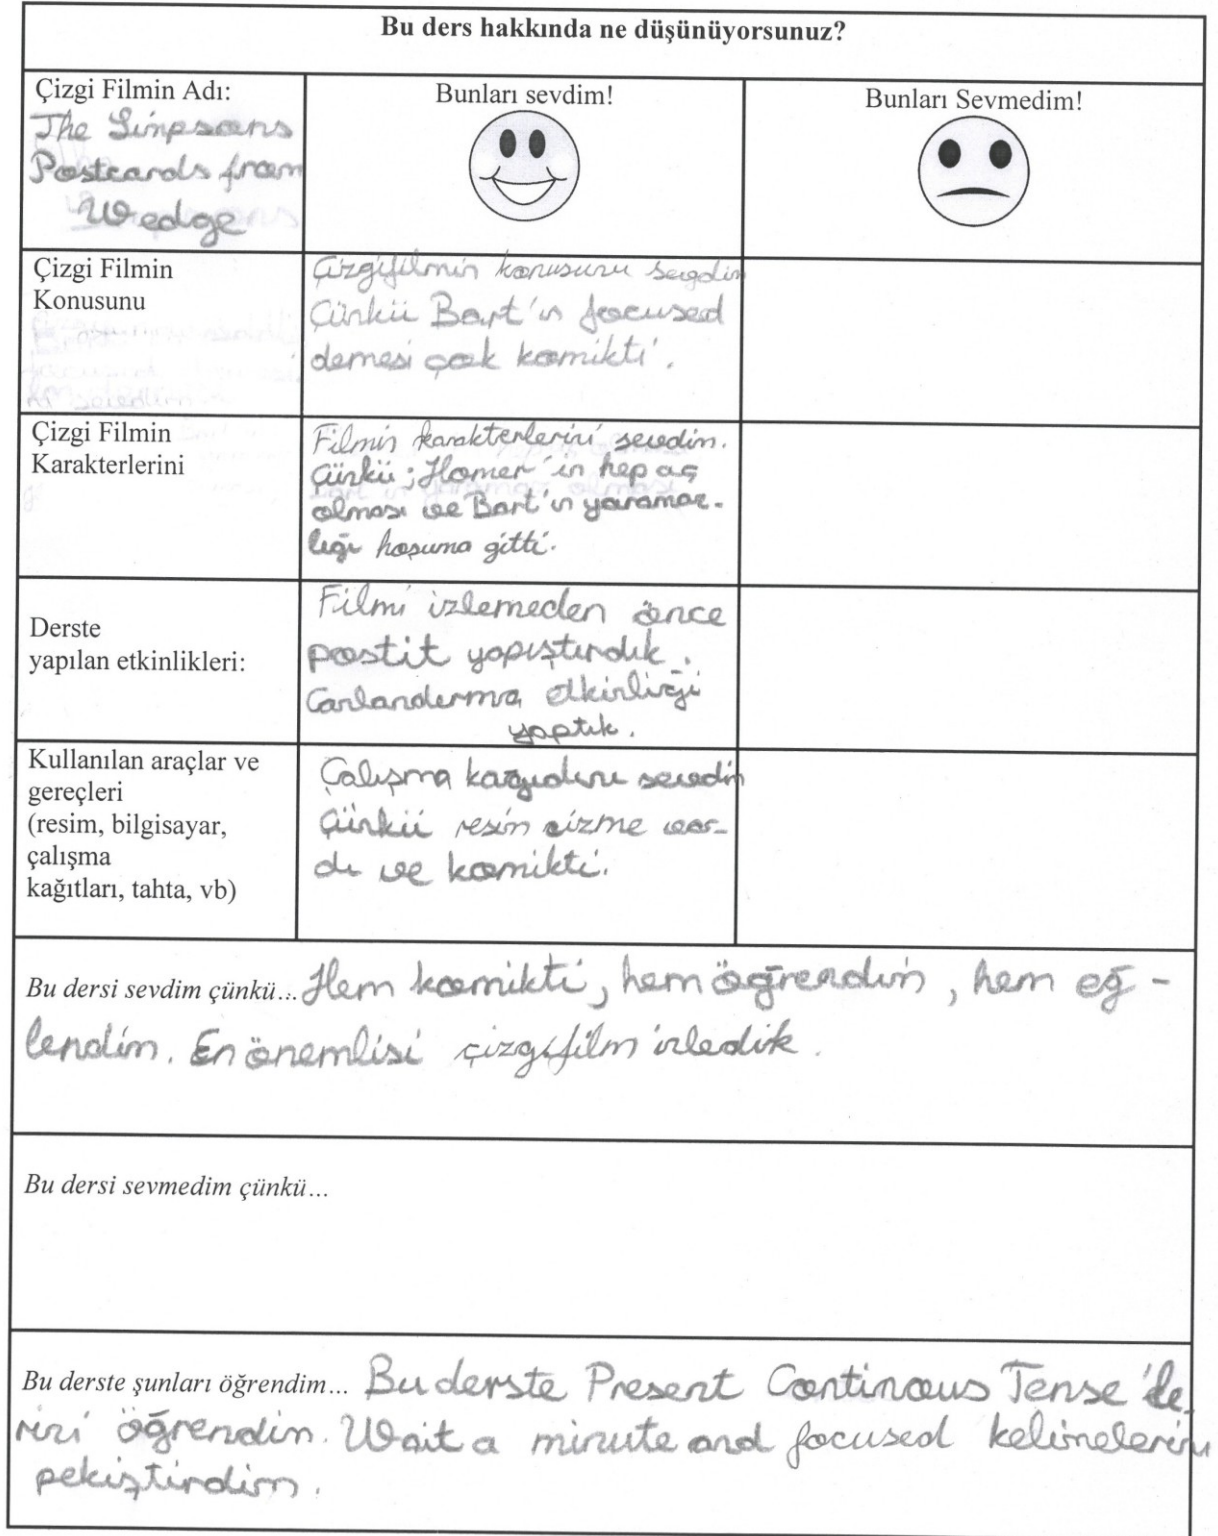 Bu ders hakkında ne düşünüyorsunuz?
Çizgi Filmin Adı:
The Simpsons
Postcards from
Wedge
Bunları sevdim!
Bunları Sevmedim!
Çizgi Filmin
Konusunu
Çizgifilmin konusunu sevdim
Çünkü Bart'ın focused
demesi çok komikti.
Çizgi Filmin
Karakterlerini
Filmin karakterlerini sevdim.
Çünkü; Homer'in hep aç
olması ve Bart'ın yaramaz-
lığı hoşuma gitti.
Derste
yapılan etkinlikleri:
Filmi izlemeden önce
postit yapıştırdık.
Canlandırma etkinliği
yaptık.
Kullanılan araçlar ve
gereçleri
(resim, bilgisayar,
çalışma
kağıtları, tahta, vb)
Çalışma kağıdını sevdim
Çünkü resim çizme var-
dı ve komikti.
Bu dersi sevdim çünkü... Hem komikti, hem öğrendim, hem eğ-
lendim. En önemlisi çizgifilm izledik.
Bu dersi sevmedim çünkü...
Bu derste şunları öğrendim... Bu derste Present Continous Tense'le-
rini öğrendim. Wait a minute and focused kelimelerini
pekiştirdim.